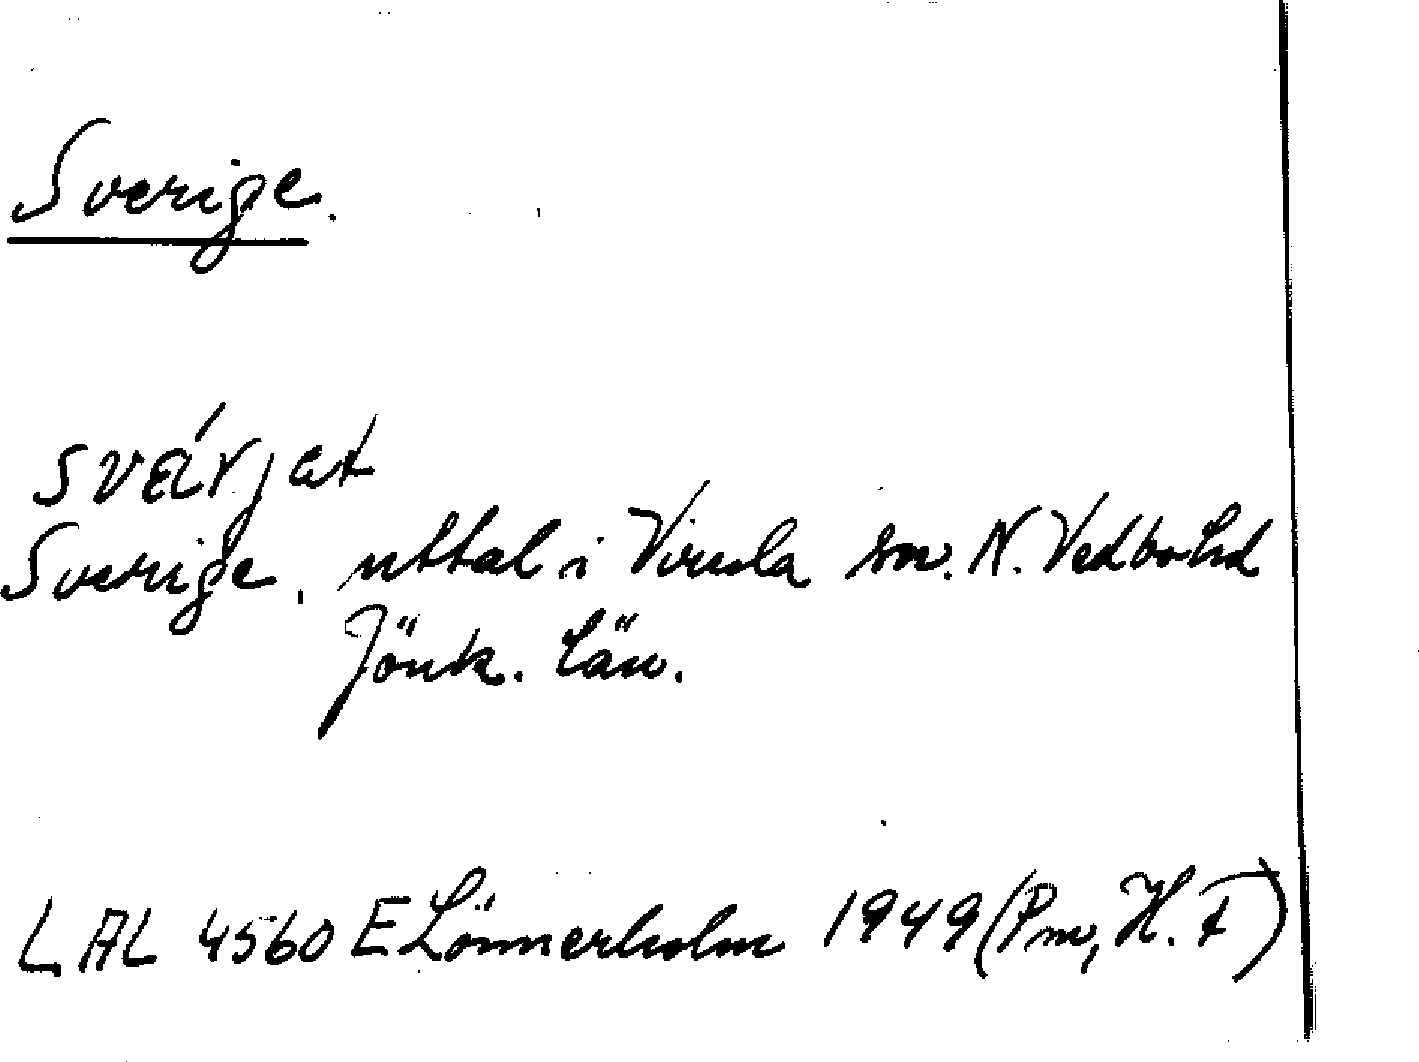 Sverige.
svärjat
Sverige, uttal i Virserla sn. N. Vedbo hd
Jönk. län.
LAL 4560 E Lönnerholm 1949 (Pm, H. F)